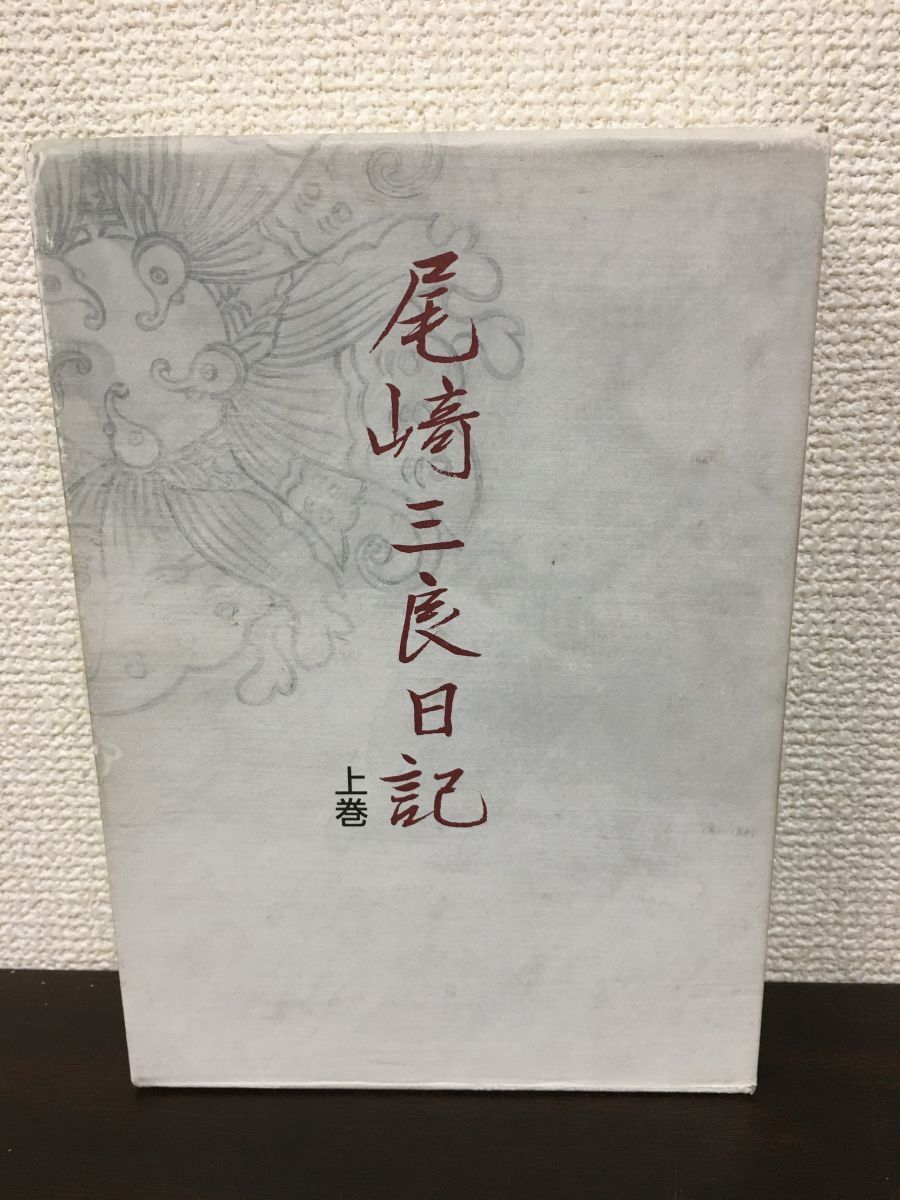 尾崎三良日記
上巻